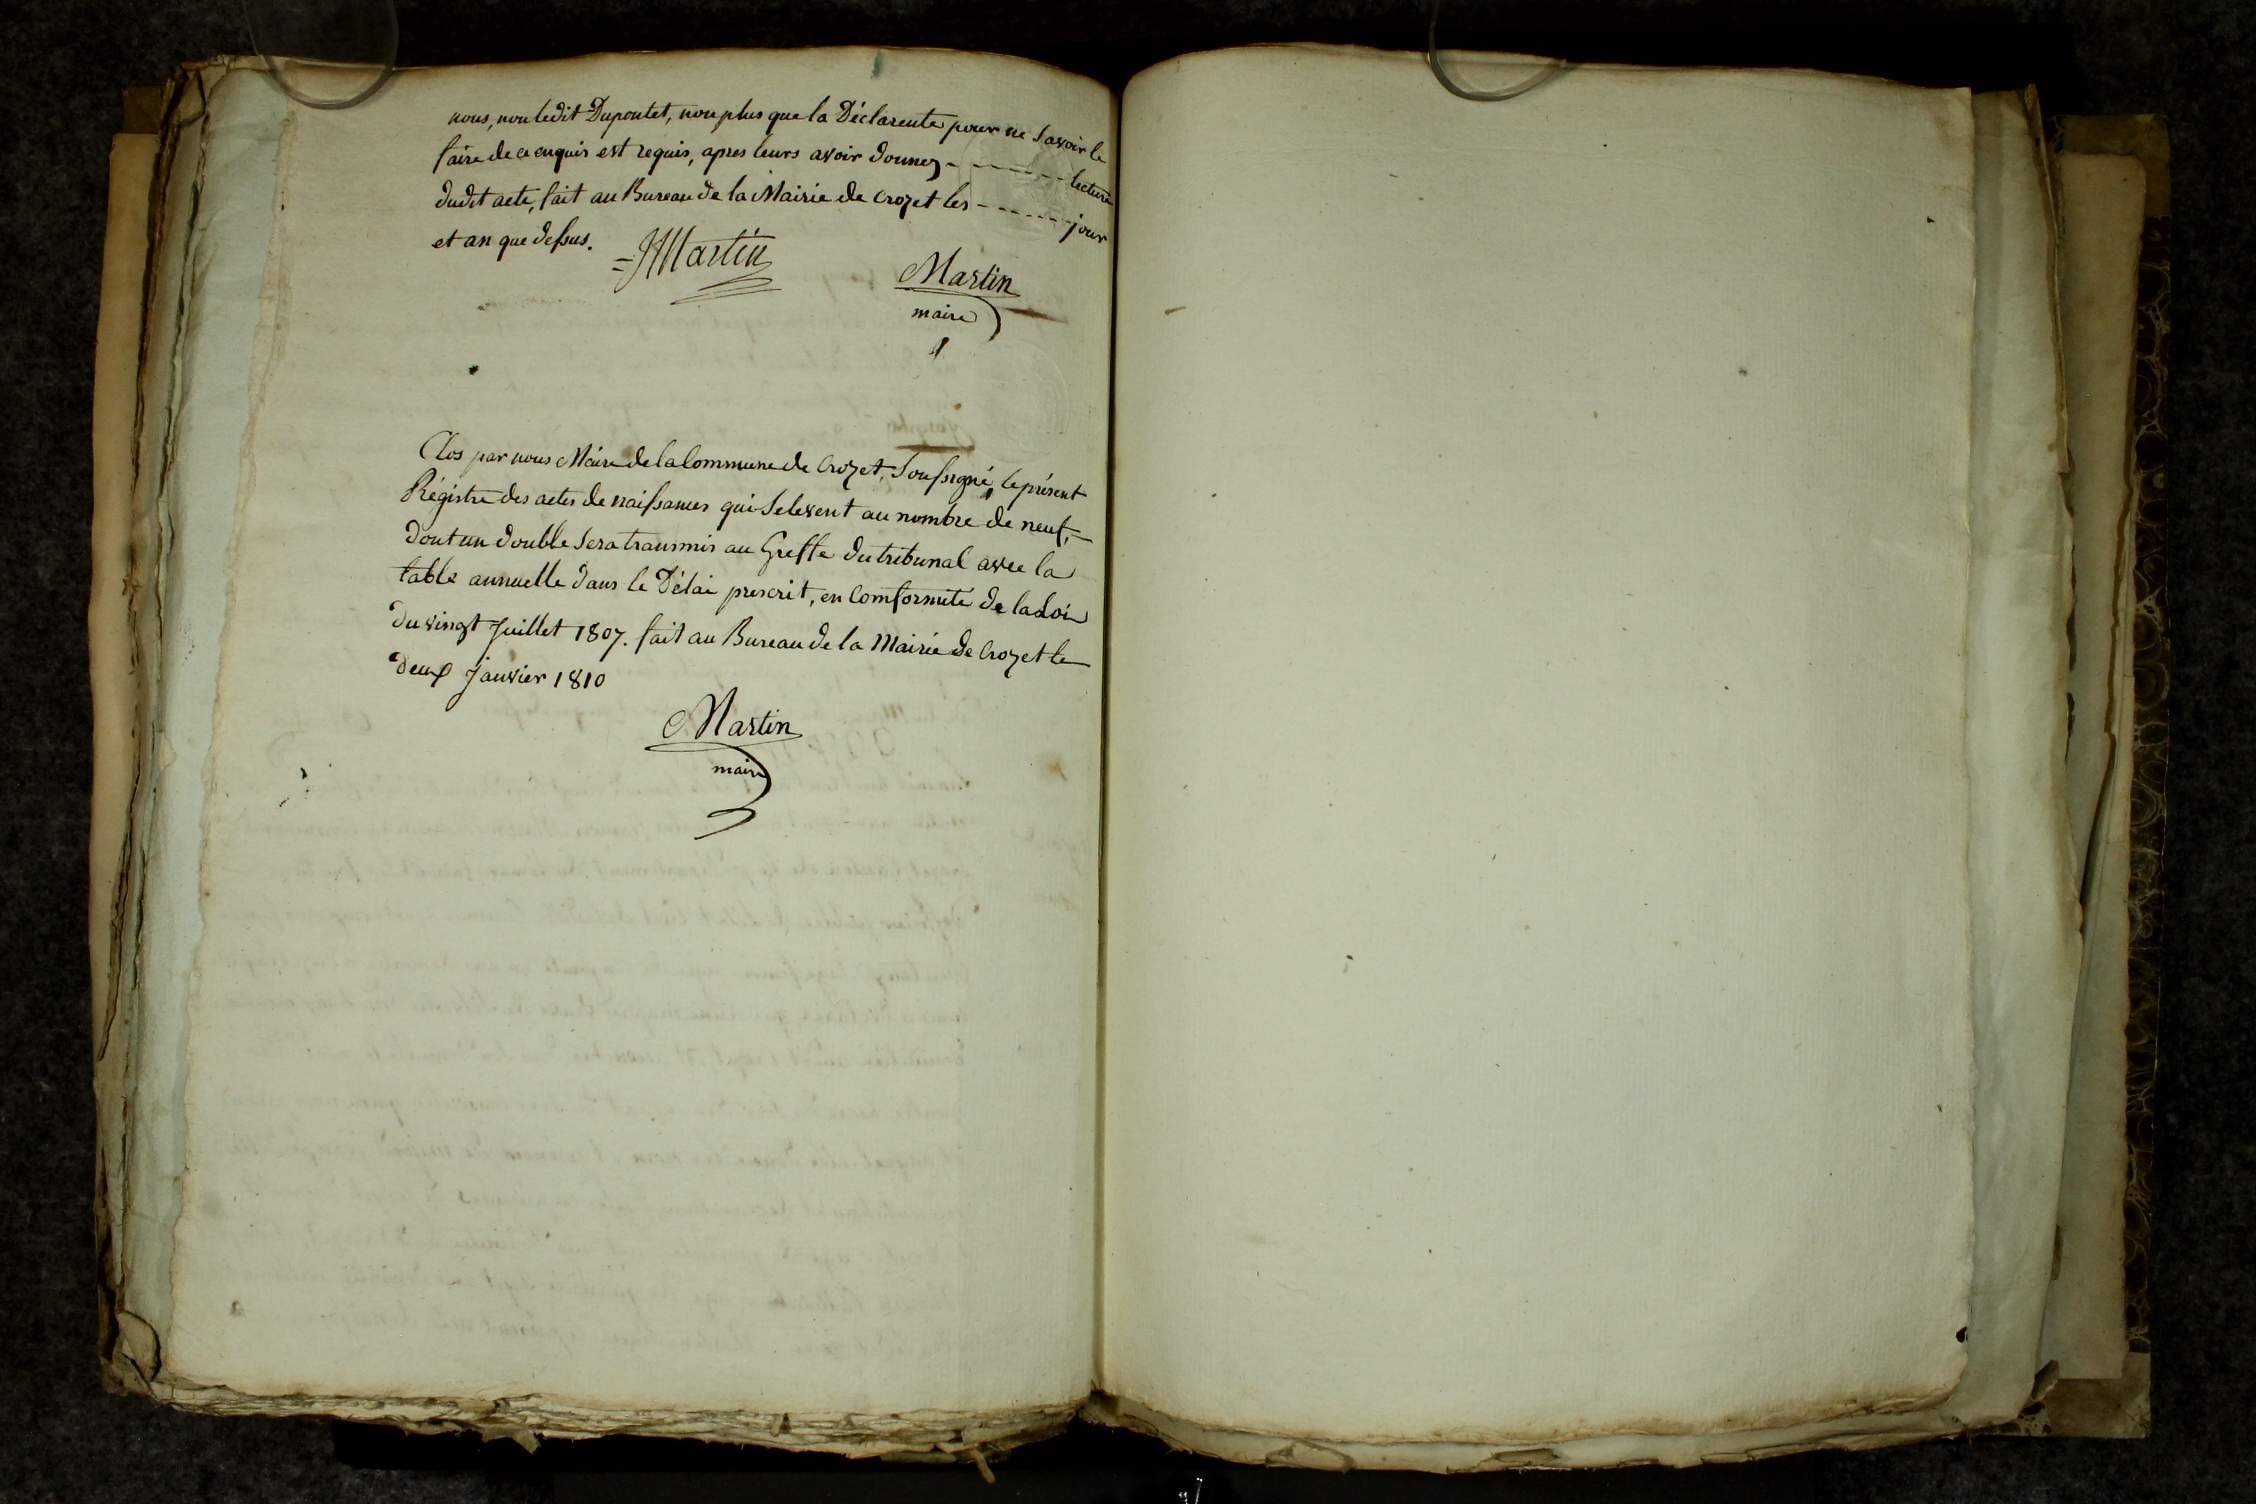 nous, non ledit Dupontet, non plus que la Déclarente pour ne Savoir le
faire de ce enquis est requis, apres leurs avoir donnez - - - - - - - lecture
dudit acte, fait au Bureau de la Mairie de Crozet les - - - - - - - jour
et an que dessus.
JMartin
Martin
maire
Clos par nous Maire de la Commune de Crozet, Soussigné, le présent
Régistre des actes de naissances qui Selevent au nombre de neuf,
dont un double Sera transmis au Greffe du tribunal avec la
table annuelle dans le Délai prescrit, en Comformité de la Loi
du vingt Juillet 1807. fait au Bureau de la Mairie de Crozet le
deux Janvier 1810
Martin
maire